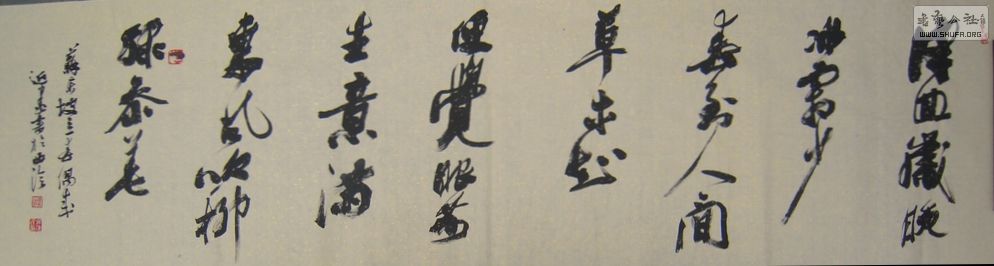 書藝公社
WWW.SHUFA.ORG
律回歲晚
冰霜少
春到人間
草木知
便覺眼前
生意滿
東風吹柳
綠參差
蘇東坡立春偶成
書於西泠